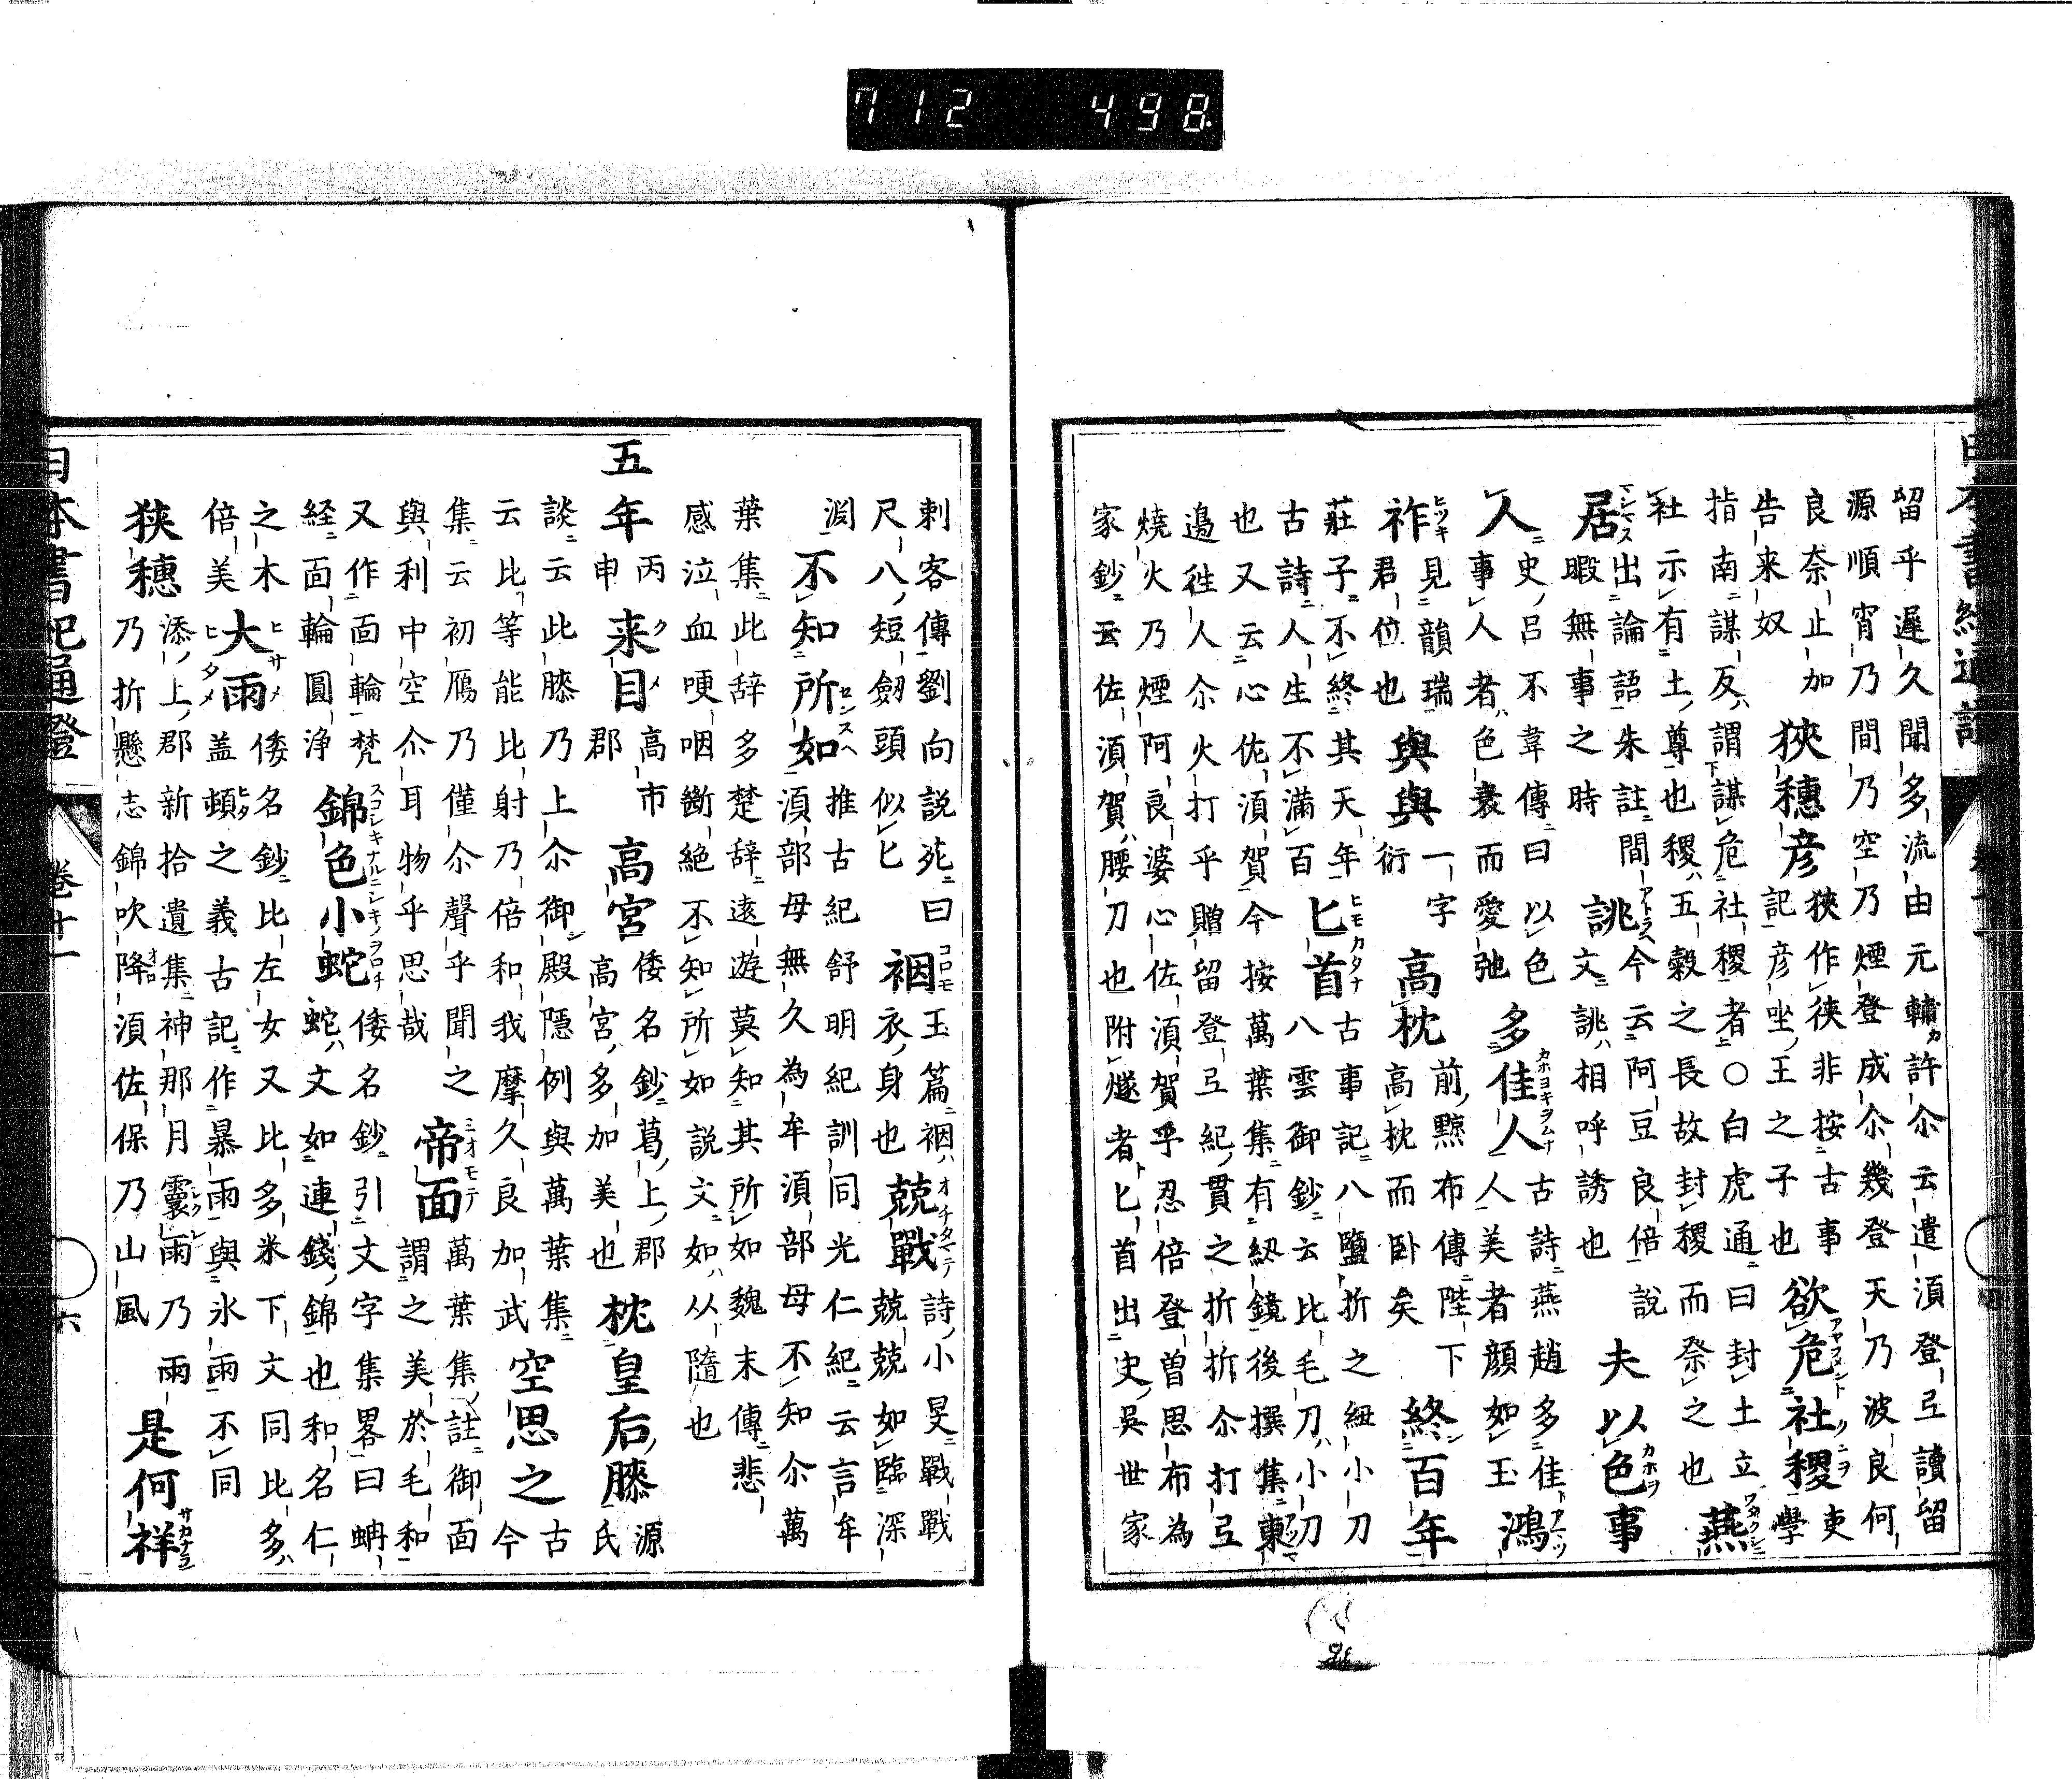 712 498
留乎遲久聞多流由元輔許尒云遣湏登弖讀留
源順宵乃間乃空乃煙登成尒幾登天乃波良何
良奈止加
告来奴
狹穗彦 狹作狭非按古事
記彦坐王之子也
欲危社稷 吏
學
指南謀反謂謀危社稷者○白虎通曰封土立
社示有土尊也稷五穀之長故封稷而祭之也 燕
居 出論語朱註間
暇無事之時
誂 今云阿豆良倍説
文誂相呼誘也
夫以色事
人 史呂不韋傳曰以色
事人者色衰而愛弛
多佳人 古詩燕趙多佳
人美者顔如玉
鴻
祚 見韻瑞
君位也
與與 一字
衍
高枕 前黥布傳陛下
高枕而卧矣
終百年
莊子不終其天年
古詩人生不滿百
匕首 古事記八鹽折之紐小刀
八雲御鈔云比毛刀小刀
也又云心佐湏賀今按萬葉集有紐鏡後撰集東
邉徃人尒火打乎贈留登弖紀貫之折折尒打弖
燒火乃煙阿良婆心佐湏賀乎忍倍登曽思布為
家鈔云佐湏賀腰刀也附燧者匕首出史吳世家
日本書紀通證 卷十一 六
刺客傳劉向説苑曰
尺八短劔頭似匕
裀 玉篇裀
衣身也
兢戰 詩小旻戰戰
兢兢如臨深
淵
不知所如 推古紀舒明紀訓同光仁紀云言牟
湏部母無久為牟湏部母不知尒萬
葉集此辞多楚辞遠遊莫知其所如魏末傳悲
感泣血哽咽斷絶不知所如説文如从隨也
五年 丙
申
来目 高市
郡
高宮 倭名鈔葛上郡
高宮多加美也
枕皇后膝 源
氏
談云此膝乃上尒御殿隱例與萬葉集
云比等能比射乃倍和我摩久良加武
空思之 古
今
集云初鴈乃僅尒聲乎聞之
與利中空尒耳物乎思哉
帝面 萬葉集註御面
謂之美於毛和
又作面輪梵
経面輪圓浄
錦色小蛇 倭名鈔引文字集畧曰蚺
蛇文如連錢錦也和名仁
之木
倍美
大雨 倭名鈔比左女又比多米下文同比多
盖頓之義古記作暴雨與氷雨不同
狹穗 添上郡新拾遺集神那月霎雨乃雨
乃折懸志錦吹降湏佐保乃山風
是何祥